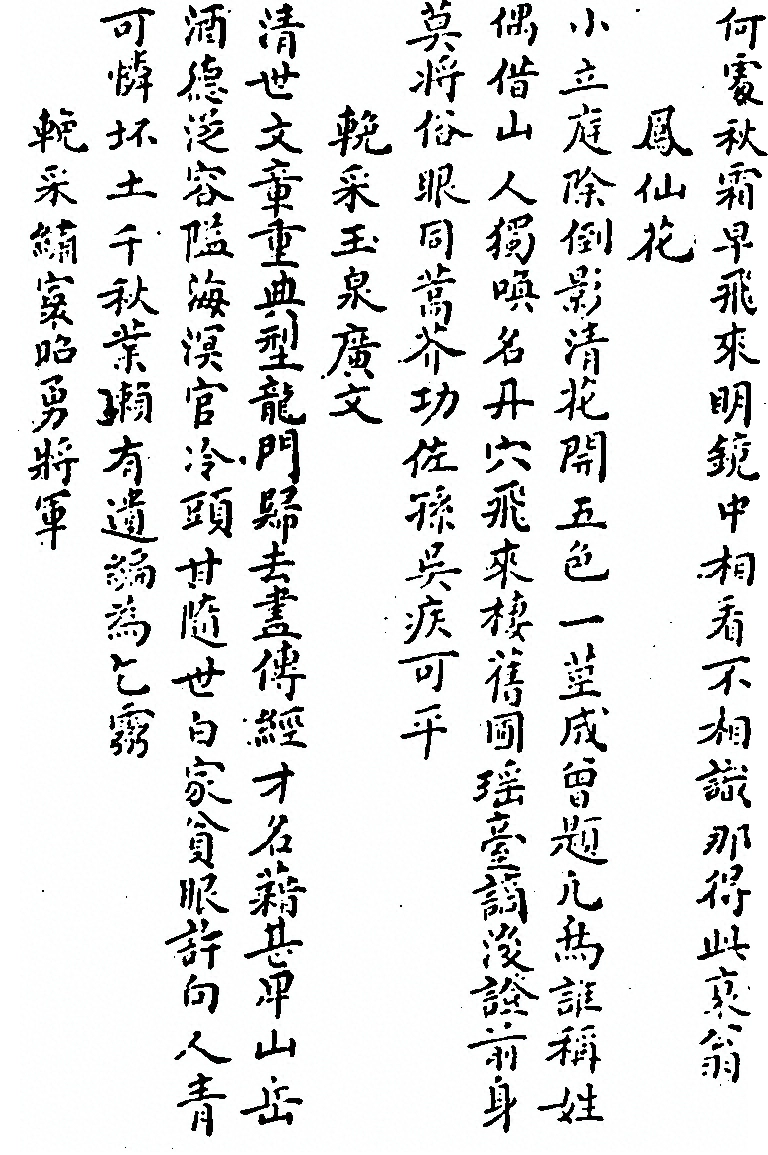 何處秋霜早飛來明鏡中相看不相識那得此衰翁
鳳仙花
小立庭除倒影清花開五色一莖成曾題凡鳥誰稱姓
偶借山人獨喚名丹穴飛來棲舊圃瑤臺謫後證前身
莫將俗眼同蒿芥功佐孫吳疾可平
輓采玉泉廣文
清世文章重典型龍門歸去盡傳經才名藉甚卑山岳
酒德泛容隘海溟官冷頭甘隨世白家貧眼許向人青
可憐坏土千秋業賴有遺編為乞靈
輓采繡裳昭勇將軍